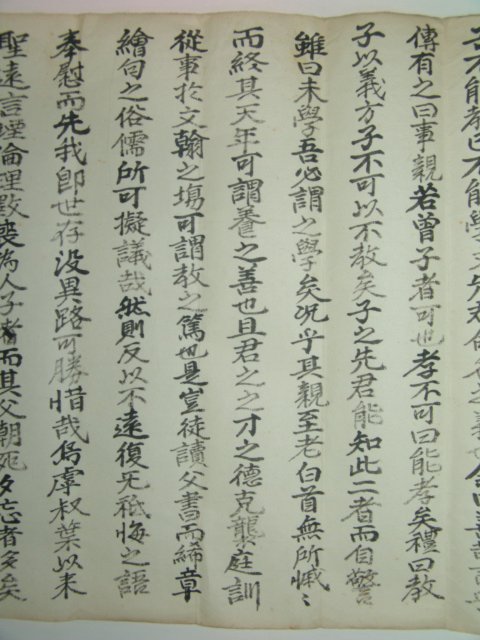 傳有之曰事親若曾子者可也孝不可曰能孝矣禮曰教
子以義方子不可以不教矣子之先君能知此二者而自警
雖曰未學吾必謂之學矣況乎其親至老白首無所慽〻
而終其天年可謂養之善也且君之之才之德克襲庭訓
從事於文翰之場可謂教之篤也是豈徒讀父書而絺章
繪句之俗儒所可擬議哉然則反以不遠復无祗悔之語
奉慰而先我卽世存沒異路可勝惜哉嗚虖叔葉以来
聖遠言堙倫理斁喪爲人子者而其父朝死夕忘者多矣